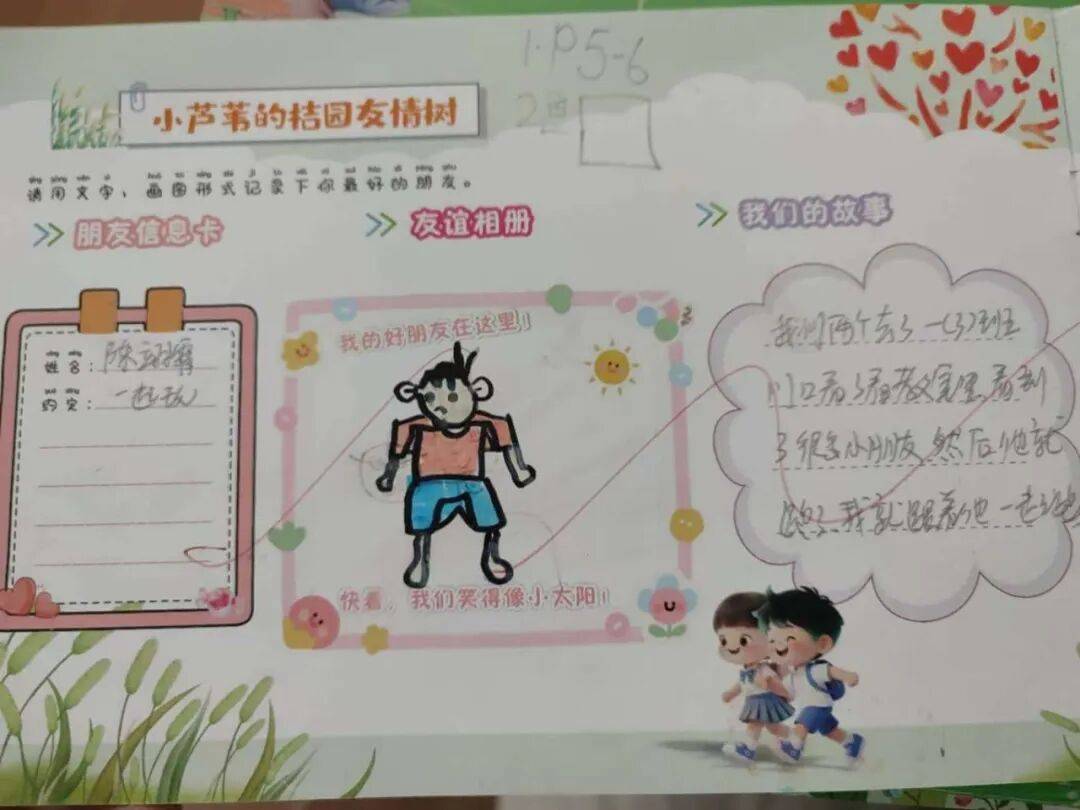 1·P5-6
2画
小芦苇的桔园友情树
请用文字、画图形式记录下你最好的朋友。
朋友信息卡
友谊相册
我们的故事
姓名：陈
约定：一起玩
我的好朋友在这里！
快看，我们笑得像小太阳！
我们两个去了一(3)班
门口看了看教室里,看到
了很多小朋友,然后他就
跑了,我就跟着他一起